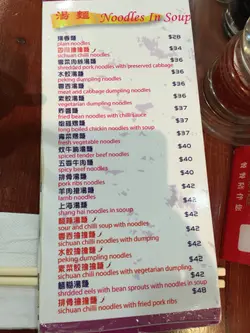 湯 麵 Noodles In Soup
plain noodles $28
四川擔擔麵 $36
sichuan chilli noodles
榨菜肉絲湯麵 $34
shredded pork noodles with preserved cabbage
水餃湯麵 $34
peking dumpling noodles
$36
meat and cabbage dumpling noodles
素餃湯麵 $36
vegetarian dumpling noodles
炸醬麵 $36
fried bean noodles with chilli sauce
$37
long boiled chicken noodles with soup
$37
fresh vegetable noodles
炆牛腩湯麵 $40
spiced tender beef noodles
五香牛肉麵 $40
spicy beef noodles
排骨湯麵 $40
pork ribs noodles
$42
lamb noodles
上海湯麵 $42
shang hai noodles in soup
酸辣湯麵 $42
sour and chilli soup with noodles
$42
sichuan chilli noodles with dumpling
水餃擔擔麵 $42
peking dumpling noodles
素菜餃擔擔麵 $42
sichuan chilli noodles with vegetarian dumpling
$42
shredded eels with bean sprouts with noodles in soup
排骨擔擔麵 $48
sichuan chilli noodles with fried pork ribs